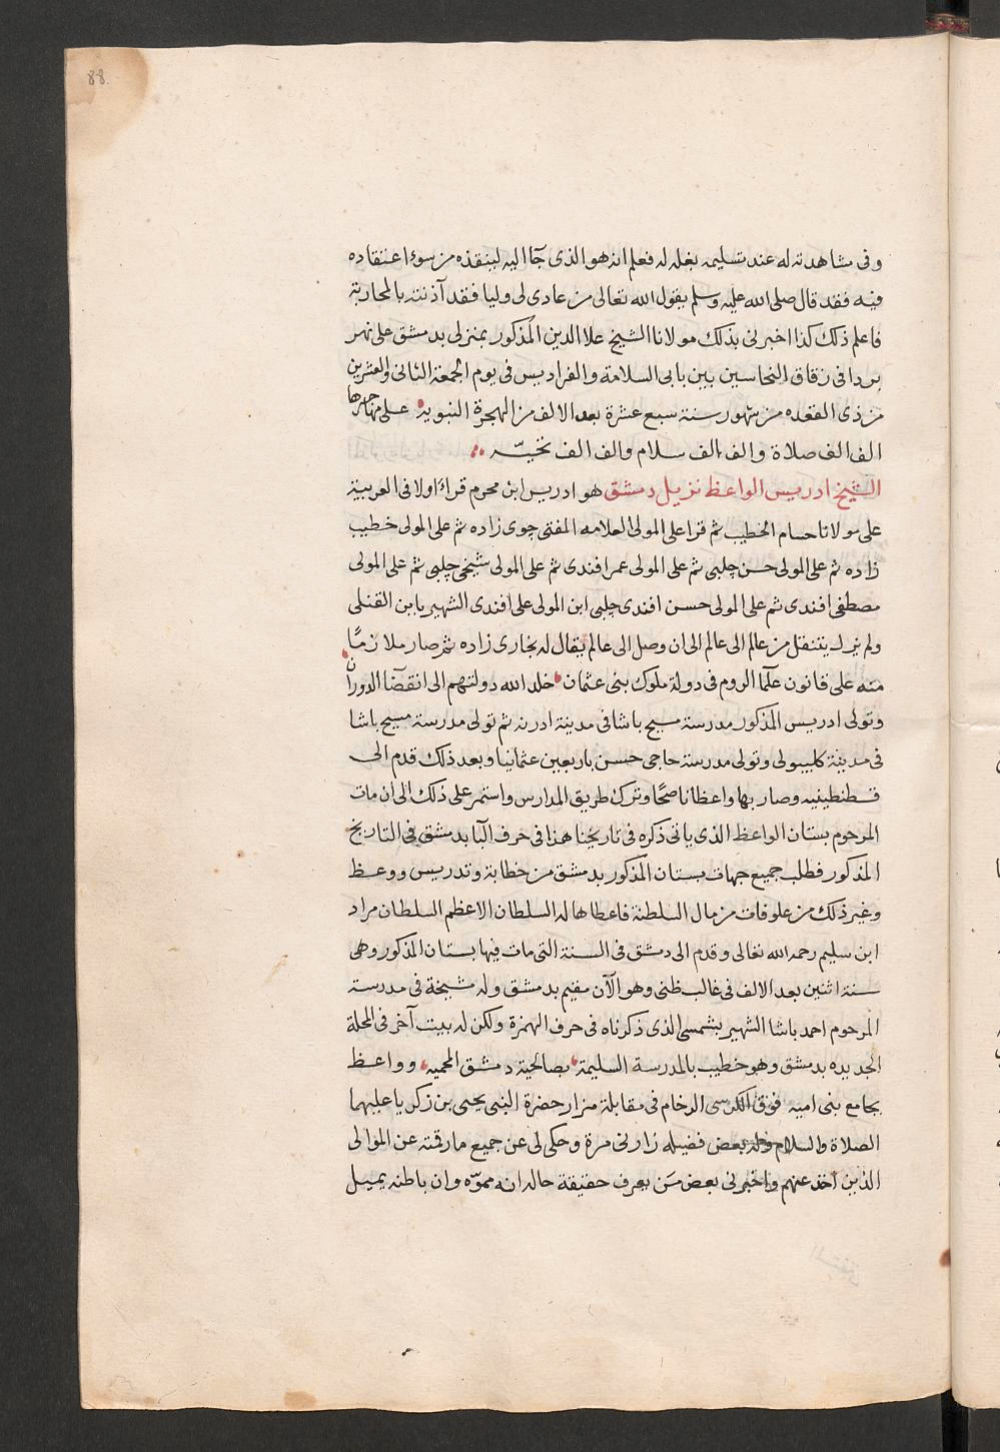 88.
وفى مشاهدته له عند تسليمه بغله له فعلم انه هو الذى جآ اليه لينقذه من سوء اعتقاده
فيه فقد قال صلى الله عليه وسلم يقول الله تعالى من عادى لى وليا فقد آذنته بالمحاربة
فاعلم ذلك كذا اخبرنى بذلك مولانا الشيخ علا الدين المذكور بمنزلى بدمشق على نهر
بردا فى زقاق النحاسين بين بابى السلامة والفراديس فى يوم الجمعة الثانى والعشرين
من ذى القعده من شهور سنة سبع عشرة بعد الالف من الهجرة النبوية على مهاجرها
الف الف صلاة والف الف سلام والف الف تحيّه
الشيخ ادريس الواعظ نزيل دمشق هو ادريس ابن محرم قراء اولا فى العربية
على مولانا حسام الخطيب ثم قرا على المولى العلامه المفتى جوى زاده ثم على المولى خطيب
زاده ثم على المولى حسن چلبى ثم على المولى عمر افندى ثم على المولى شيخى چلبى ثم على المولى
مصطفى افندى ثم على المولى حسن افندى چلبى ابن المولى على افندى الشهير بابن القنلى
ولم يزل يتنقل من عالم الى عالم الى ان وصل الى عالم يقال له بخارى زاده ثم صار ملازمًا
منه على قانون علمآ الروم فى دولة ملوك بنى عثمان خلد الله دولتهم الى انقضآ الدوران
وتولى ادريس المذكور مدرسة مسيح باشا فى مدينة ادرنه ثم تولى مدرسة مسيح باشا
فى مدينة كليبولى وتولى مدرسة حاجى حسن باربعين عثمانيا وبعد ذلك قدم الى
قسطنطينيه وصار بها واعظا ناصحًا وترك طريق المدارس واستمر على ذلك الى ان مات
المرحوم بستان الواعظ الذى ياتى ذكره فى تاريخنا هذا فى حرف البآ بدمشق فى التاريخ
المذكور فطلب جميع جهات بستان المذكور بدمشق من خطابة وتدريس ووعظ
وغير ذلك من علوفات من مال السلطنة فاعطاها له السلطان الاعظم السلطان مراد
ابن سليم رحمه الله تعالى وقدم الى دمشق فى السنة التى مات فيها بستان المذكور وهى
سنة اثنين بعد الالف فى غالب ظنى وهو الآن مقيم بدمشق وله مشيخة فى مدرسة
المرحوم احمد باشا الشهير بشمسى الذى ذكرناه فى حرف الهمزة ولكن له بيت آخر فى المحلة
الجديده بدمشق وهو خطيب بالمدرسة السليمة بصالحية دمشق المحميه وواعظ
بجامع بنى اميه فوق الكرسى الرخام فى مقابلة مزار حضرة النبى يحيى بن زكريا عليهما
الصلاة والسلام وله بعض فضيله زارنى مرة وحكى لى عن جميع مارقمته عن الموالى
الذين اخذ عنهم واخبرنى بعض مَن يعرف حقيقة حاله انه مموّه وان باطنه يميل